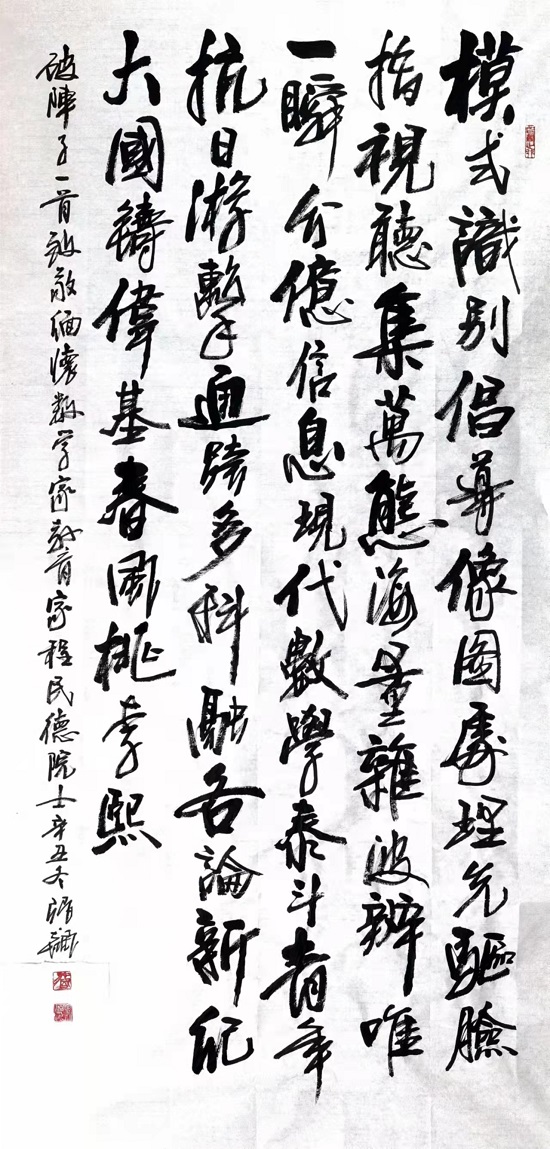 模式識別倡導像圖處理先驅臉
指視聽集萬態海量雜波辨唯
一瞬分億信息現代數學泰斗青年
抗日游擊通跨多科融各論新紀
大國鑄偉基春風桃李熙
破陣子一首致敬緬懷數学家教育家程民德院士辛丑冬